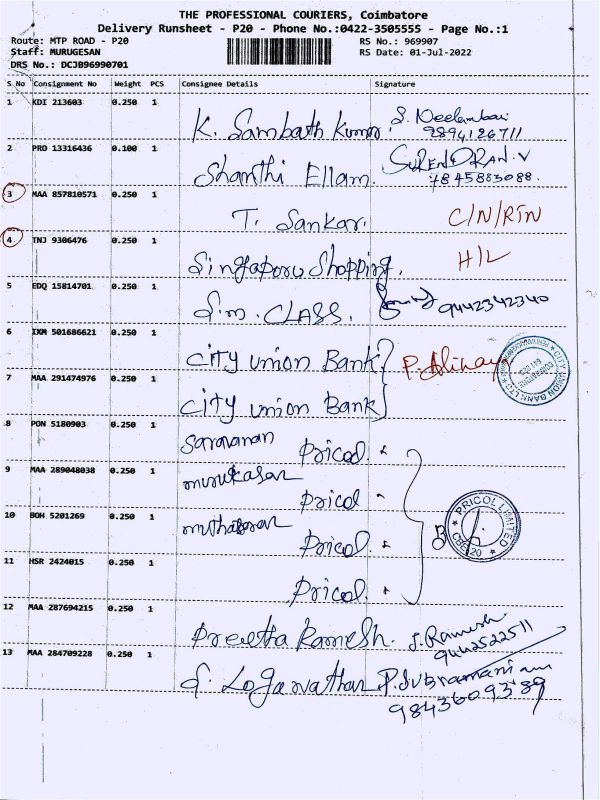 THE PROFESSIONAL COURIERS, Coimbatore
Delivery Runsheet - P20 - Phone No.:0422-3505555 - Page No.:1
Route: MTP ROAD - P20 RS No.: 969907
Staff: MURUGESAN RS Date: 01-Jul-2022
DRS No.: DCJB96990701
S No Consignment No Weight PCS Consignee Details Signature
1 KDI 213603 0.250 1
K. Sambath Kumar S. Neelambari
9894126711
2 PRO 13316436 0.100 1
Shanthi Ellam. SURENDRAN.V
9845883088.
3 MAA 857810571 0.250 1
T. Sankar. C/N/RTN
4 TNJ 9306476 0.250 1
Singaporu Shopping. H/L
5 EDQ 15814701 0.250 1
S.m. CLASS. 9442342340
6 IXM 501686621 0.250 1
City union Bank
7 MAA 291474976 0.250 1
City union Bank
CITY UNION BANK LTD
8 PON 5180903 0.250 1
Saravanan Pricol.
9 MAA 289048038 0.250 1
murukasan
Pricol
10 BOH 5201269 0.250 1
Pricol.
PRICOL LIMITED
CBE-20
11 HSR 2424015 0.250 1
Pricol.
12 MAA 287694215 0.250 1
Preetha Ramesh. J. Ramesh
9442522511
13 MAA 284709228 0.250 1
S. Logarvathan P. Subramaniam
9843609389